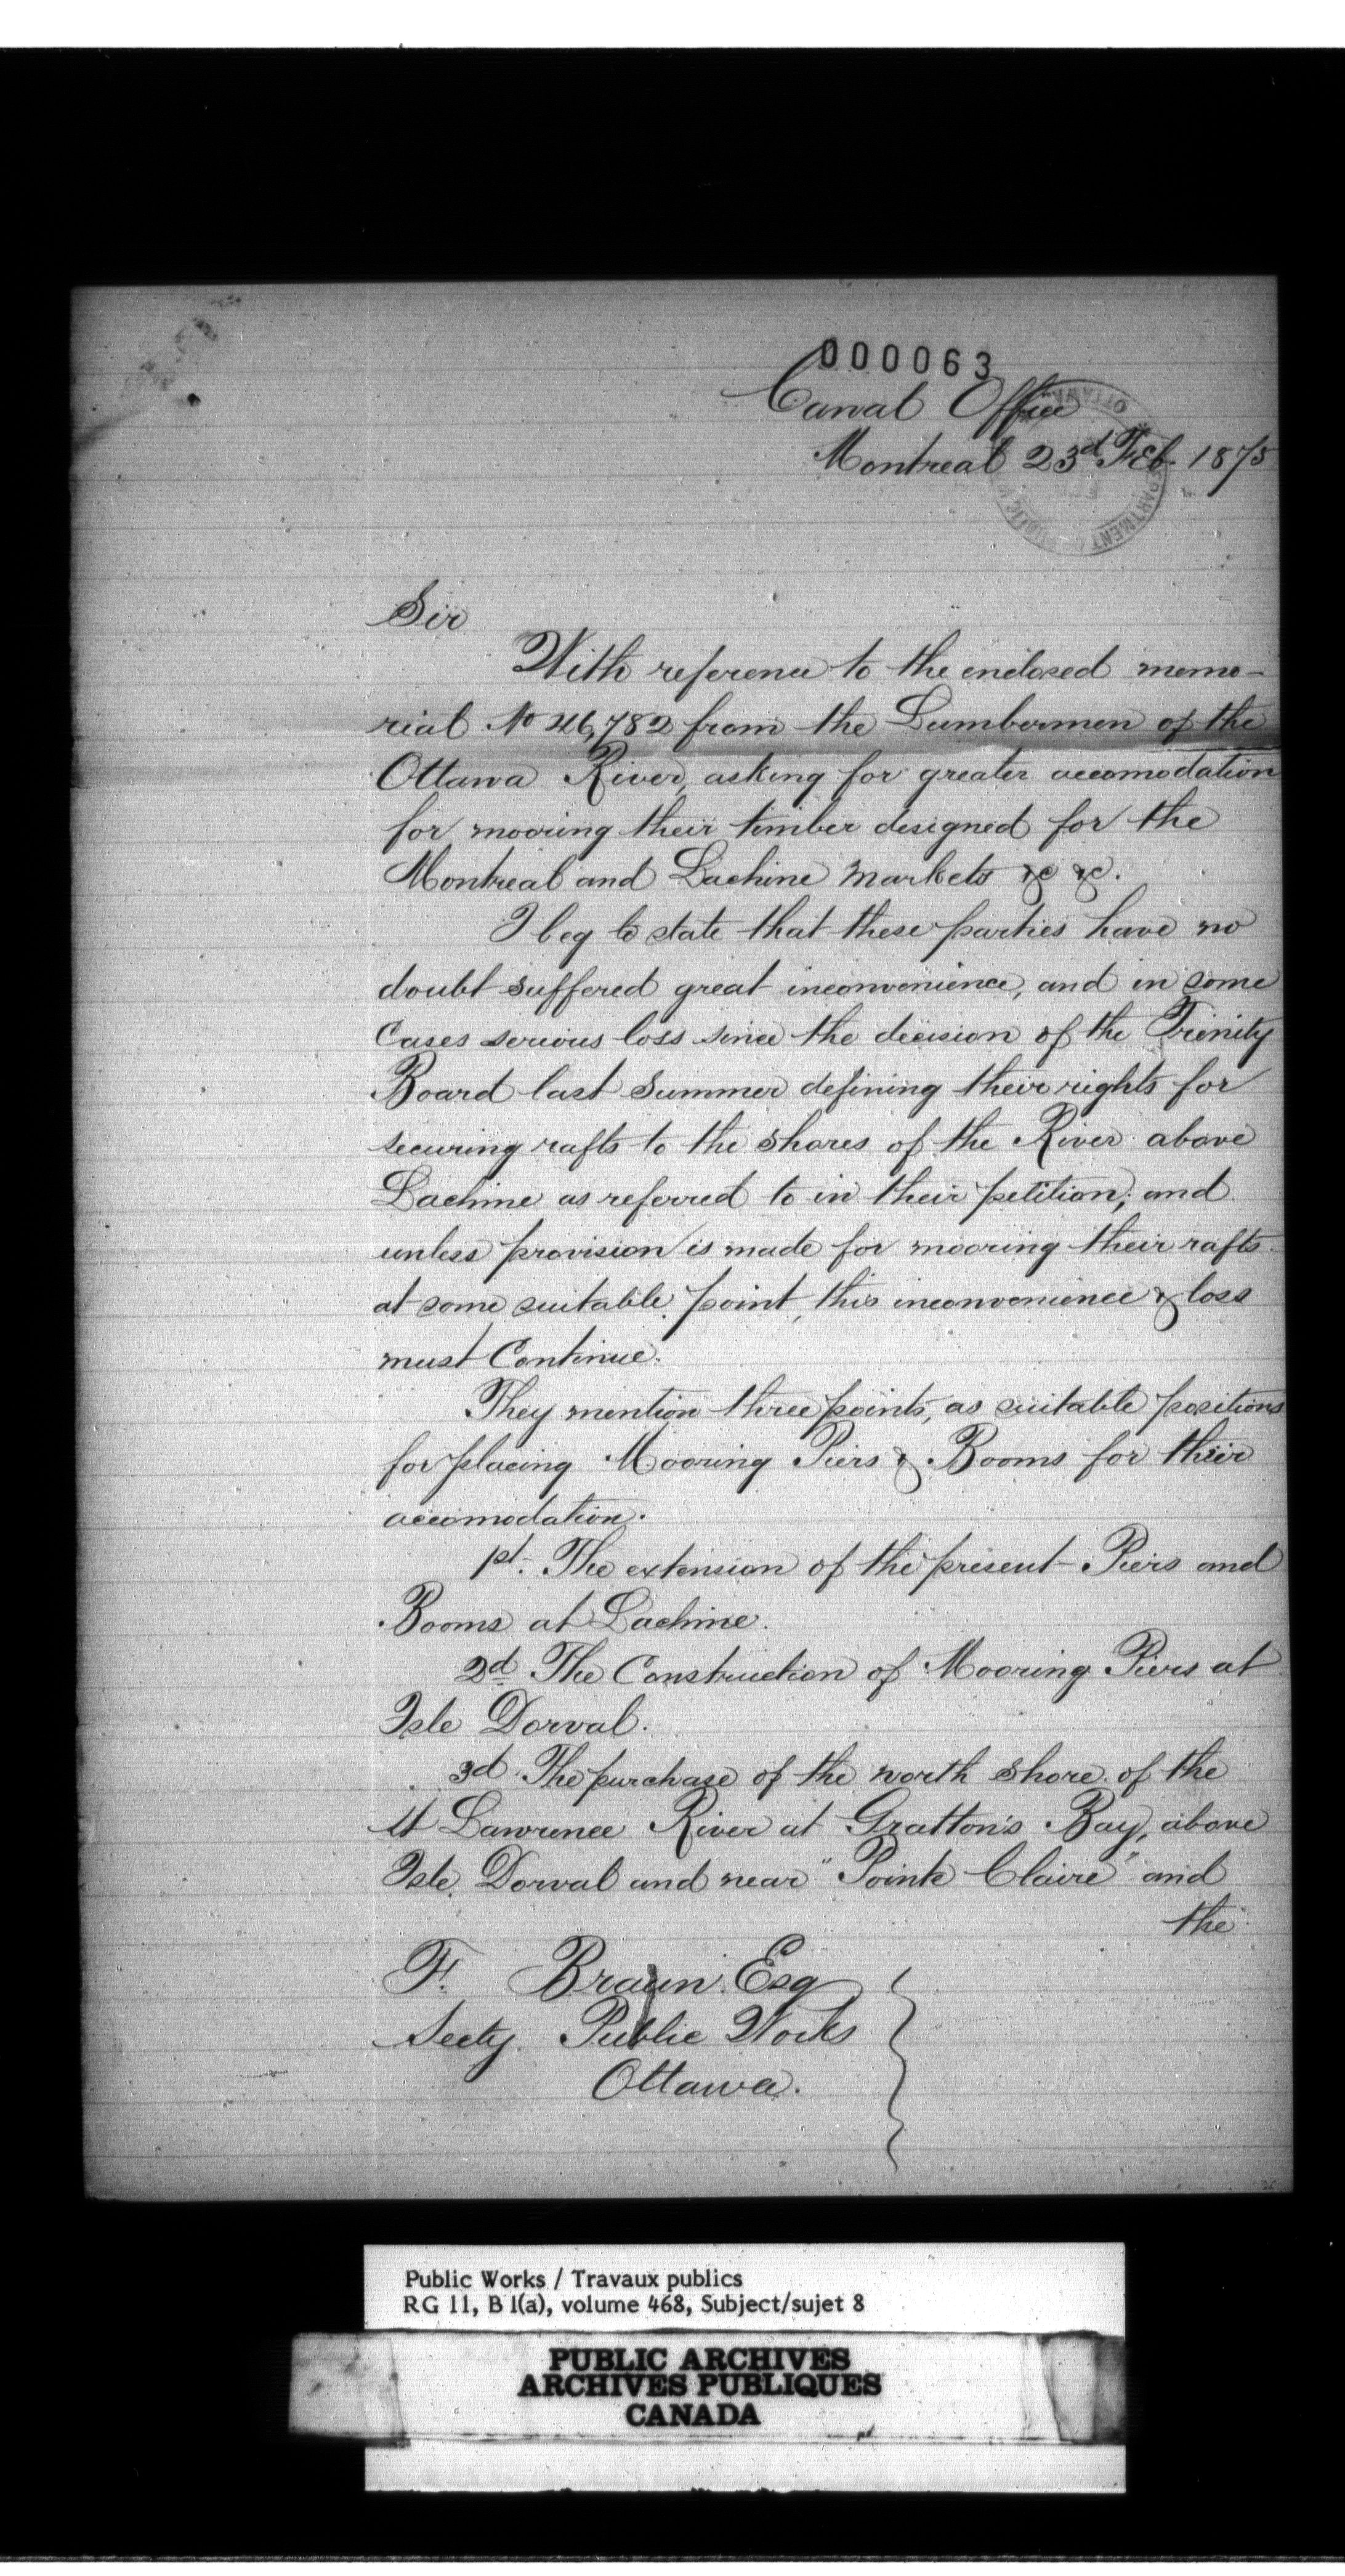 000063
Canal Office
Montreal 23d Feb. 1875
OTTAWA
DEPARTMENT PUBLIC
Sir
With reference to the enclosed memo-
rial No 46,782 from the Lumbermen of the
Ottawa River, asking for greater accomodation
for mooring their timber designed for the
Montreal and Lachine Markets &c &c.
I beg to state that these parties have no
doubt suffered great inconvenience, and in some
Cases serious loss since the decision of the Trinity
Board last Summer defining their rights for
securing rafts to the shores of the River above
Lachine as referred to in their petition; and
unless provision is made for mooring their rafts
at some suitable point, this inconvenience & loss
must Continue.
They mention three points, as suitable positions
for placing Mooring Piers & Booms for their
accomodation.
1st. The extension of the present Piers and
Booms at Lachine.
2d The Construction of Mooring Piers at
Isle Dorval.
3d The purchase of the north Shore of the
St Lawrence River at Gratton's Bay, above
Isle Dorval and near "Pointe Claire" and
the
F. Braun Esq
Secty. Public Works
Ottawa.
Public Works / Travaux publics
RG 11, B 1(a), volume 468, Subject/sujet 8
PUBLIC ARCHIVES
ARCHIVES PUBLIQUES
CANADA